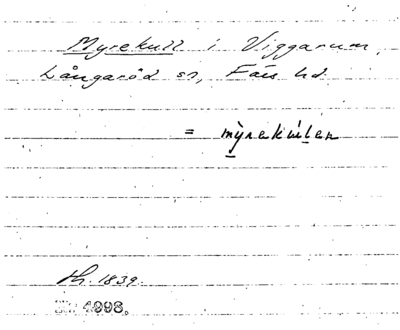 Myrekull i Viggarum,
Långaröd sn, Färs hd.
= mỳrekúlen
h. 1839.
4998.